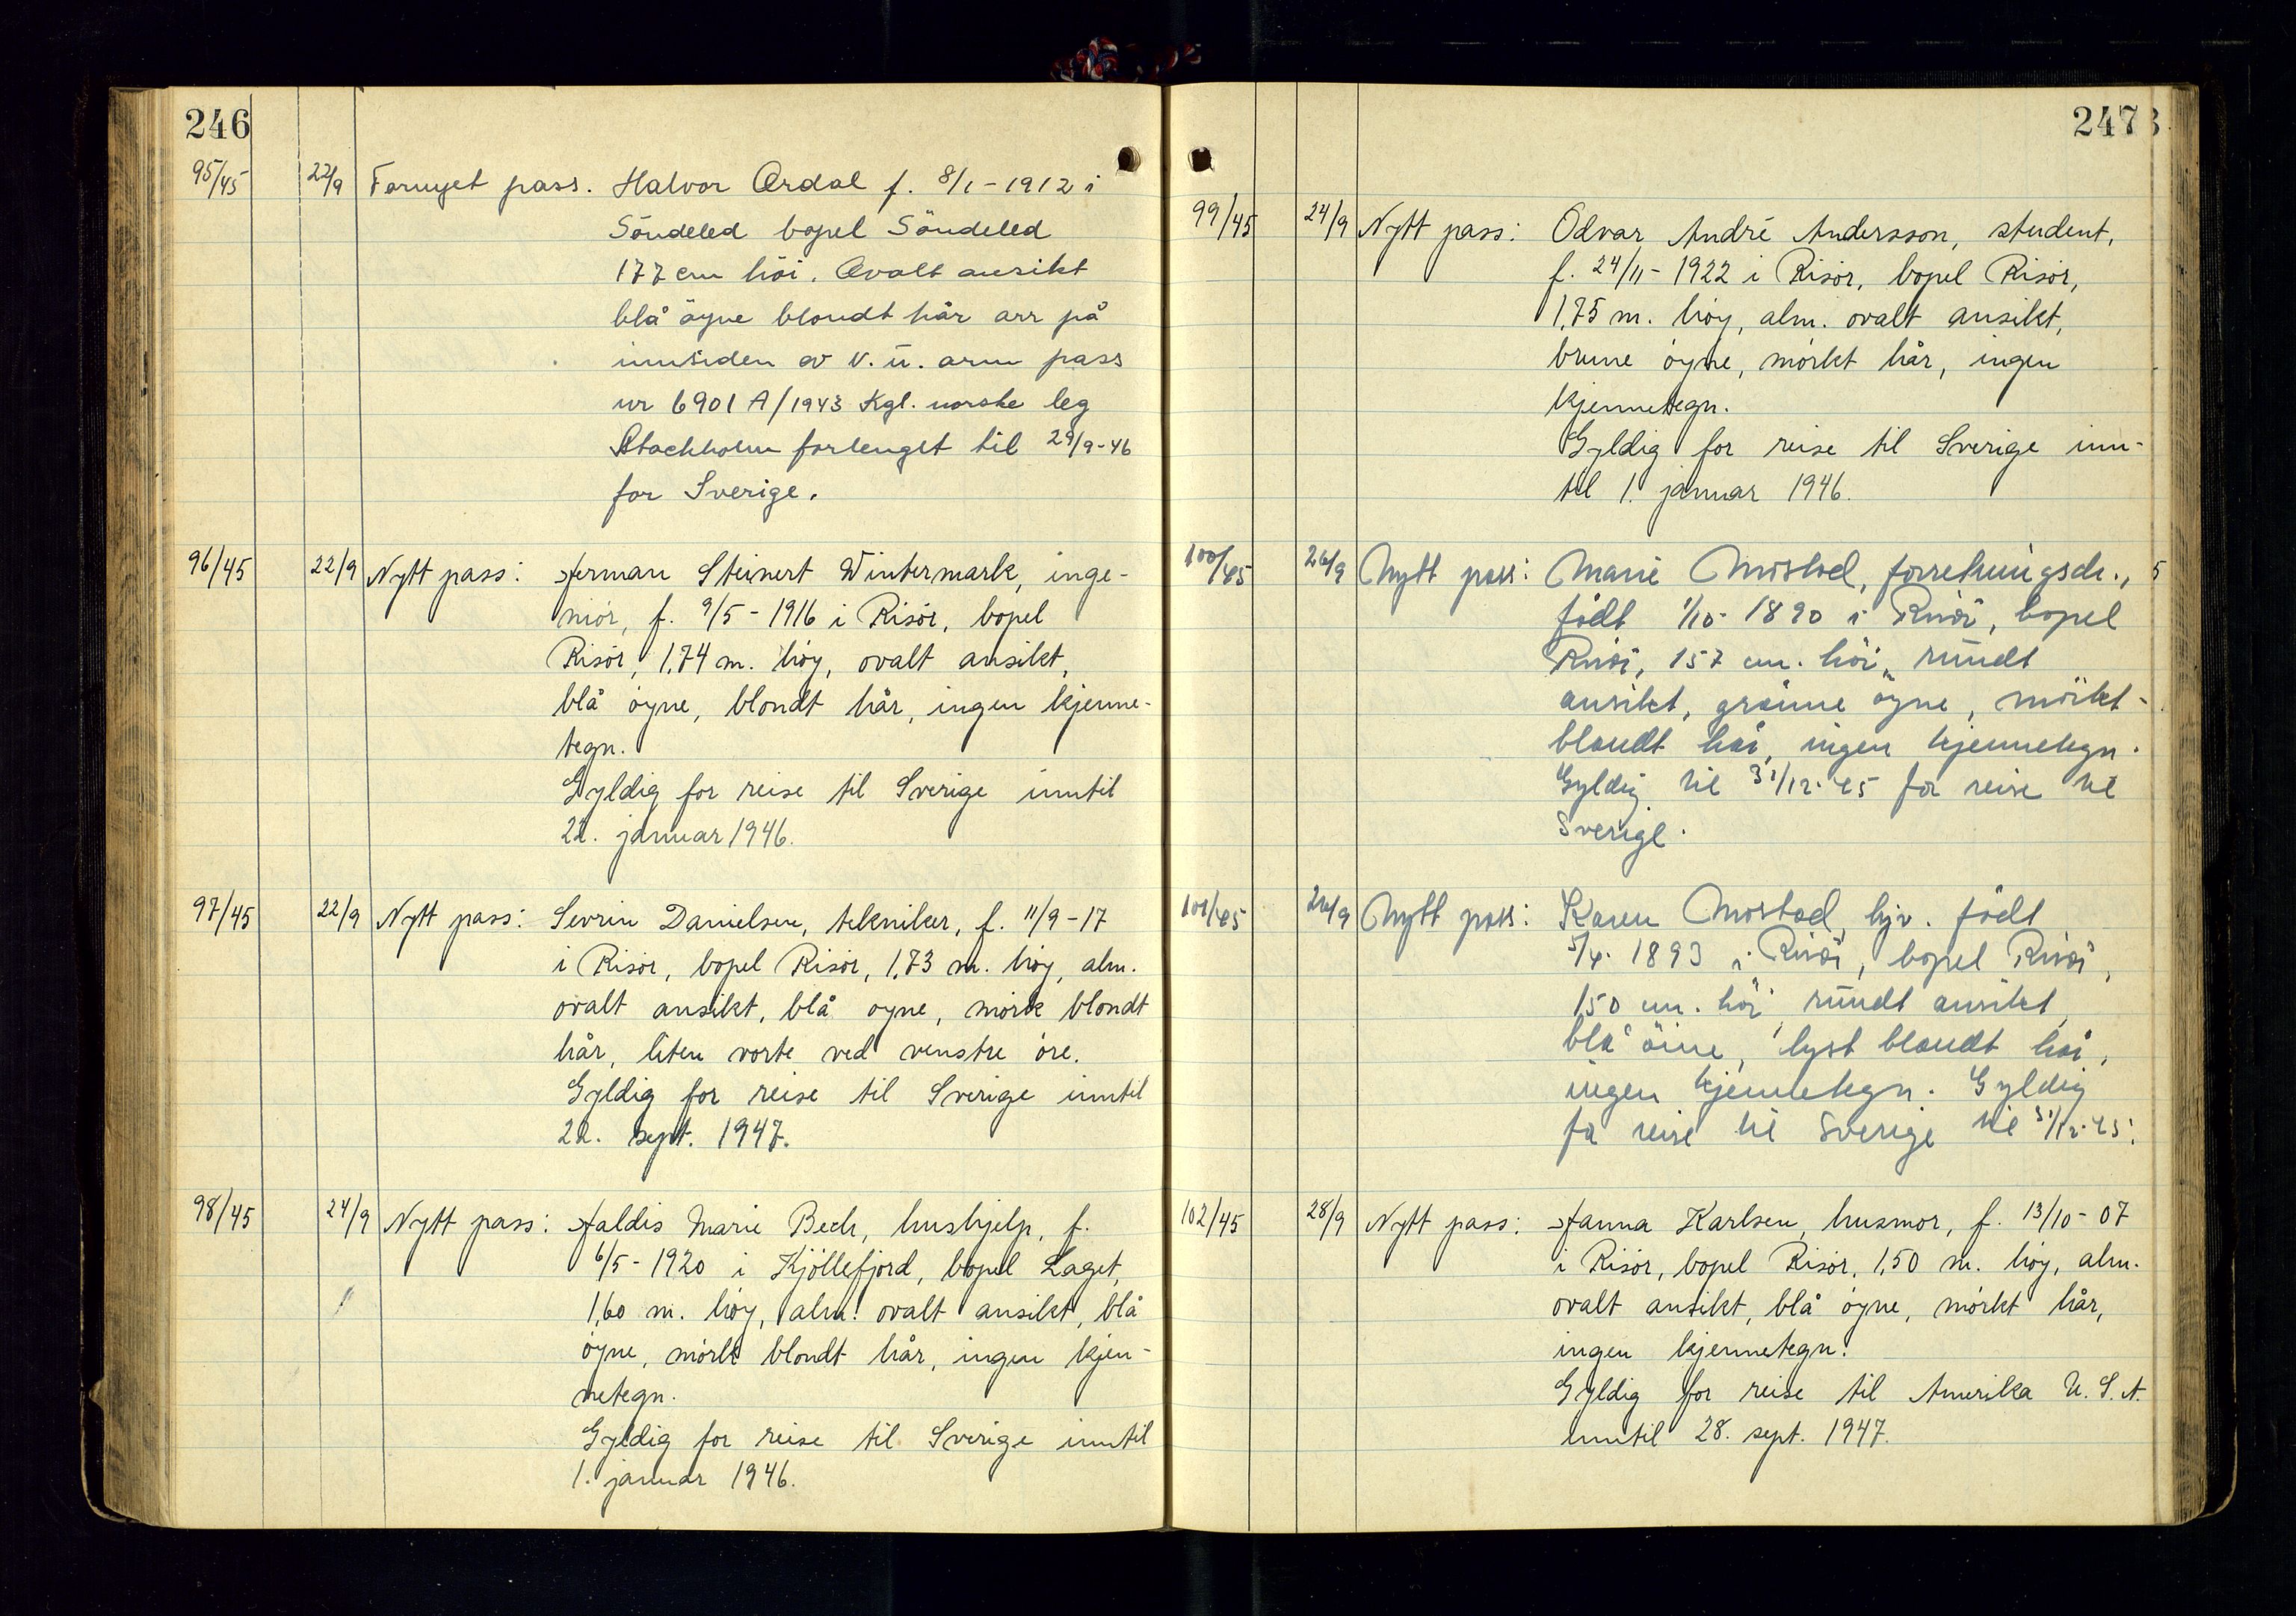 246
95/45 22/9 Fornyet pass. Halvor Ordal f. 8/1-1912 i
Söndeled bopel Söndeled
177 cm höi. Ovalt ansikt
blå öyne blondt hår arr på
innsiden av v. u. arm pass
nr 6901 A/1943 Kgl. norske leg
Stockholm forlenget til 29/9-46
for Sverige.
96/45 22/9 Nytt pass: Herman Steinert Wintermark, inge-
niör, f. 9/5-1916 i Risör, bopel
Risör, 1,74 m. höy, ovalt ansikt,
blå öyne, blondt hår, ingen kjenne-
tegn.
Gyldig for reise til Sverige inntil
22. januar 1946.
97/45 22/9 Nytt pass: Sevrin Danielsen, tekniker, f. 11/9-17
i Risör, bopel Risör, 1,73 m. höy, alm.
ovalt ansikt, blå öyne, mörk blondt
hår, liten vorte ved venstre öre.
Gyldig for reise til Sverige inntil
22. sept. 1947.
98/45 24/9 Nytt pass: Haldis Marie Bech, hushjelp, f.
6/5-1920 i Kjöllefjord, bopel Laget,
1,60 m. höy, alm. ovalt ansikt, blå
öyne, mörk blondt hår, ingen kjen-
netegn.
Gyldig for reise til Sverige inntil
1. januar 1946.
247
99/45 24/9 Nytt pass: Odvar André Andersson, student,
f. 24/11-1922 i Risör, bopel Risör,
1,75 m. höy, alm. ovalt ansikt,
brune öyne, mörkt hår, ingen
kjennetegn.
Gyldig for reise til Sverige inn-
til 1. januar 1946.
100/45 26/9 Nytt pass: Marie Mostad, forretningsdr.,
födt 1/10-1890 i Risör, bopel
Risör, 157 cm. höi, rundt
ansikt, grönne öyne, mörkt-
blondt hår, ingen kjennetegn.
Gyldig til 31/12-45 for reise til
Sverige.
101/45 26/9 Nytt pass: Karen Mostad, hjv. födt
5/4-1893 i Risör, bopel Risör,
150 cm. höi, rundt ansikt,
blå öine, lyst blondt hår,
ingen kjennetegn. Gyldig
for reise til Sverige til 31/12-45.
102/45 28/9 Nytt pass: Hanna Karlsen, husmor, f. 13/10-07
i Risör, bopel Risör, 1,50 m. höy, alm.
ovalt ansikt, blå öyne, mörkt hår,
ingen kjennetegn.
Gyldig for reise til Amerika U.S.A.
inntil 28. sept. 1947.